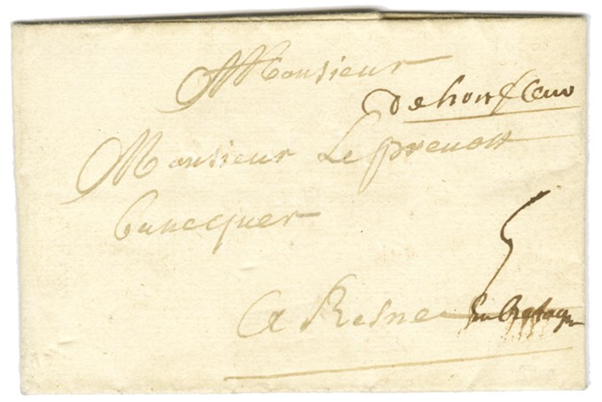 Monsieur
De honfleur
Monsieur Le prevost
bancquer
5
A Resne en Bretagne